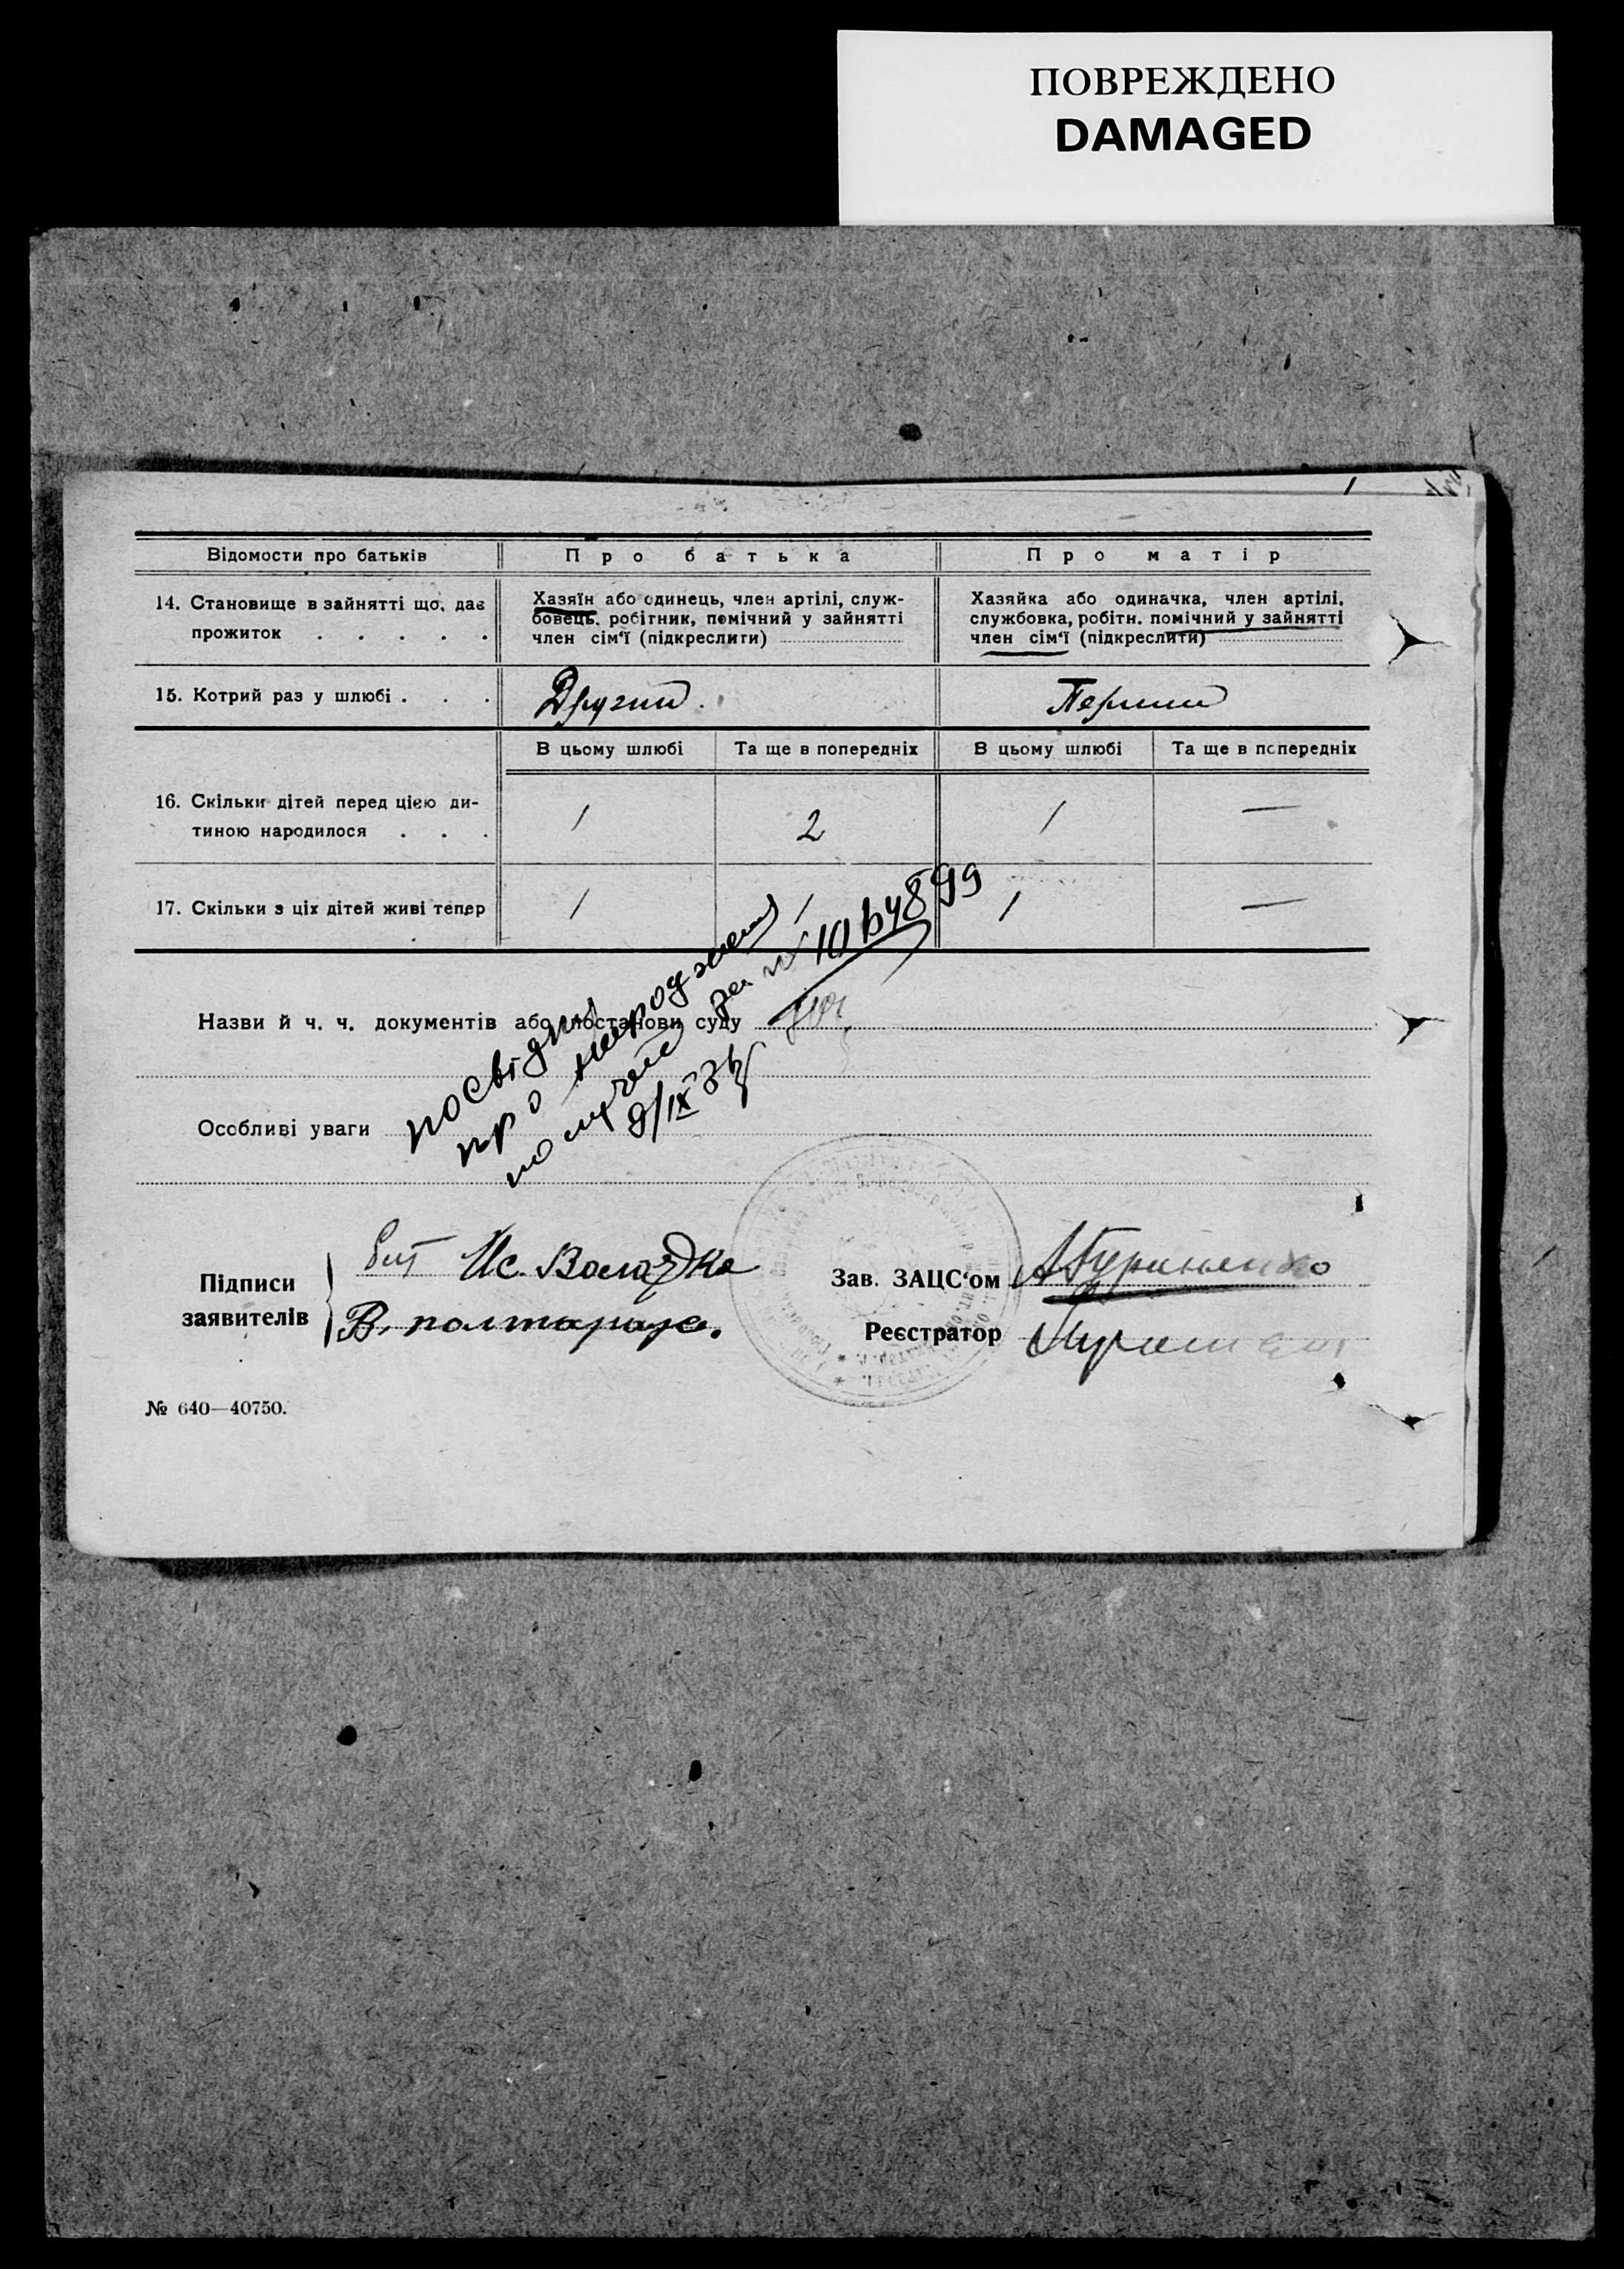 ПОВРЕЖДЕНО
DAMAGED
Відомости про батьків
Про батька
Про матір
14. Становище в зайнятті що, дає
прожиток . . . . .
Хазяїн або одинець, член артілі, служ-
бовець, робітник, помічний у зайнятті
член сім'ї (підкреслити)
Хазяйка або одиначка, член артілі,
службовка, робітн. помічний у зайнятті
член сім'ї (підкреслити)
15. Котрий раз у шлюбі . . .
Другий.
Перший
В цьому шлюбі
Та ще в попередніх
В цьому шлюбі
Та ще в попередніх
16. Скільки дітей перед цією ди-
тиною народилося . . .
1
2
1
—
17. Скільки з ціх дітей живі тепер
1
1
1
—
Назви й ч. ч. документів або постанови суду
Особливі уваги
посвідку
про народження
за № 10
9/IX
Підписи
заявителів
Ис.
В. полтарак.
Зав. ЗАЦС'ом
Реєстратор
№ 640—40750.